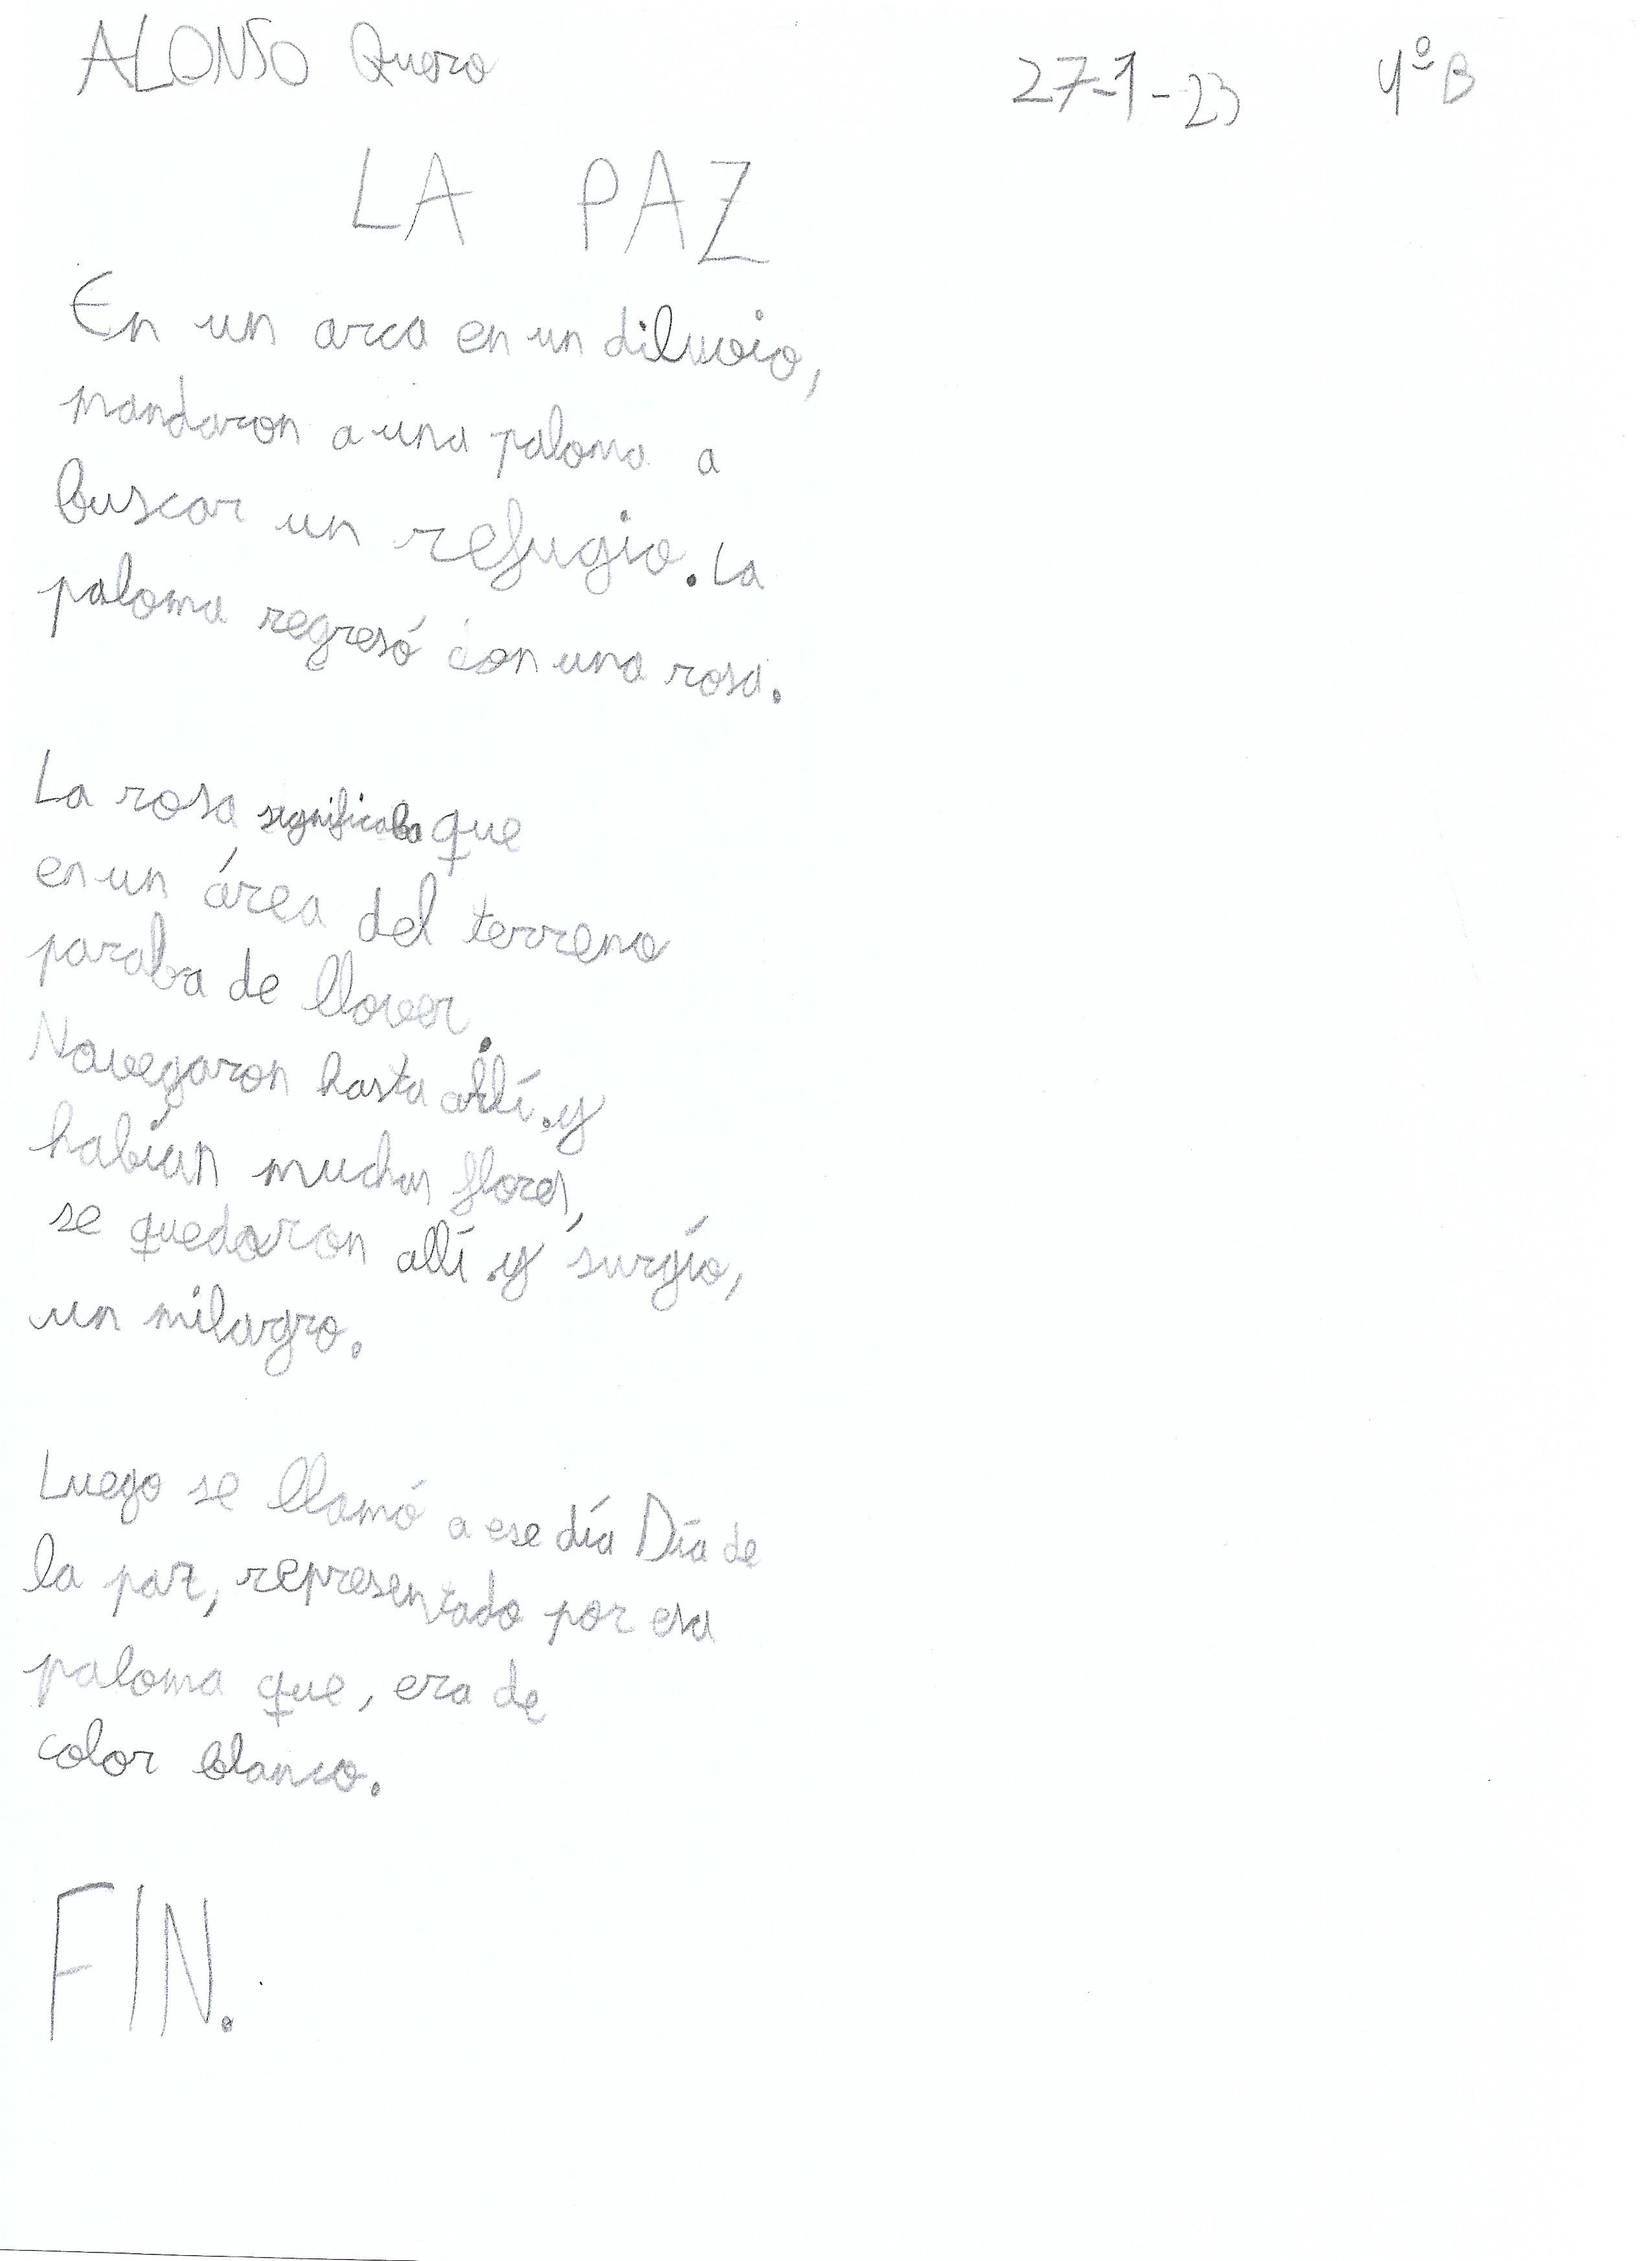 ALONSO Quero 27-1-23 4º B
LA PAZ
En un arca en un diluvio,
mandaron a una paloma a
buscar un refugio. La
paloma regresó con una rosa.
La rosa significaba que
en un área del terreno
paraba de llover.
Navegaron hasta allí y
habían muchas flores,
se quedaron allí y surgío,
un milagro.
Luego se llamó a ese día Día de
la paz, representado por esa
paloma que, era de
color blanco.
FIN.